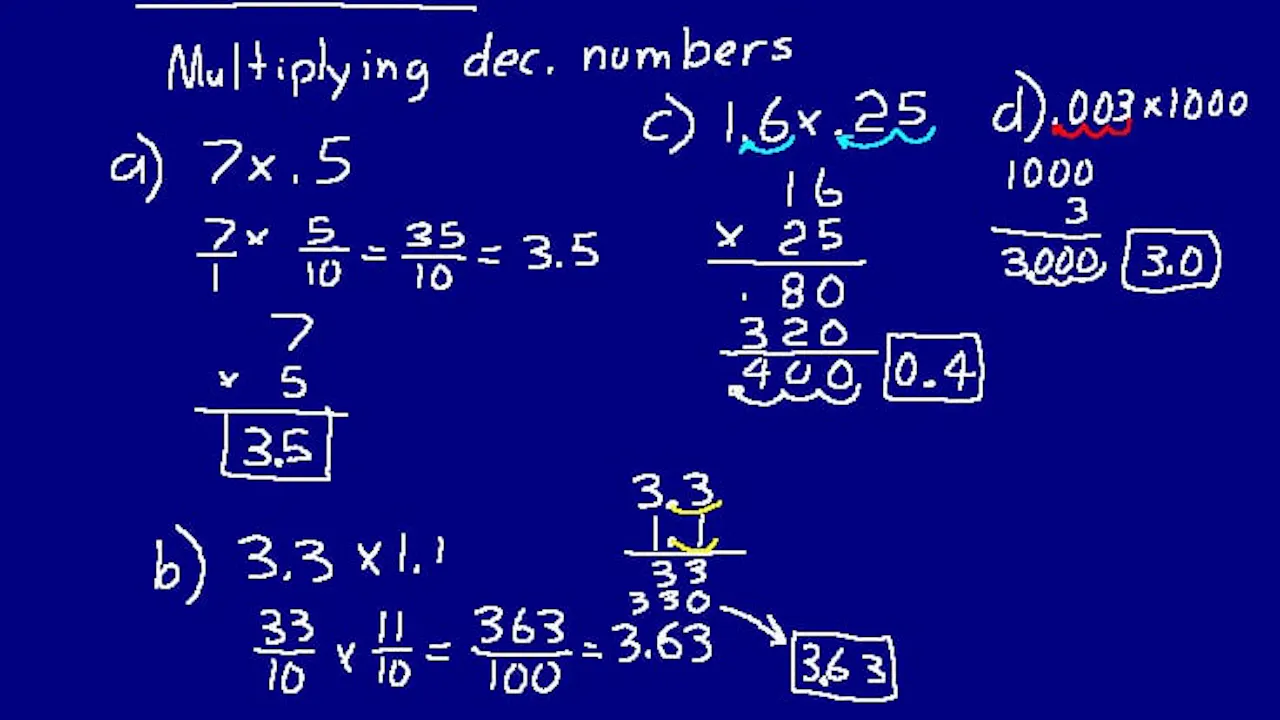 Multiplying dec. numbers
a) 7 x .5
7/1 x 5/10 = 35/10 = 3.5
7
x 5
3.5
b) 3.3 x 1.1
33/10 x 11/10 = 363/100 = 3.63
3.3
1.1
33
330
3.63
c) 1.6 x .25
16
x 25
.80
320
.400
0.4
d) .003 x 1000
1000
3
3.000
3.0